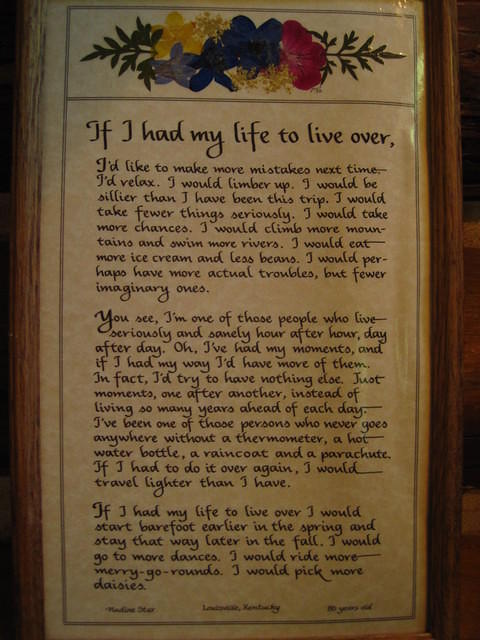 If I had my life to live over,
I'd like to make more mistakes next time.
I'd relax. I would limber up. I would be
sillier than I have been this trip. I would
take fewer things seriously. I would take
more chances. I would climb more moun-
tains and swim more rivers. I would eat
more ice cream and less beans. I would per-
haps have more actual troubles, but fewer
imaginary ones.
You see, I'm one of those people who live
seriously and sanely hour after hour, day
after day. Oh, I've had my moments, and
if I had my way I'd have more of them.
In fact, I'd try to have nothing else. Just
moments, one after another, instead of
living so many years ahead of each day.
I've been one of those persons who never goes
anywhere without a thermometer, a hot
water bottle, a raincoat and a parachute.
If I had to do it over again, I would
travel lighter than I have.
If I had my life to live over I would
start barefoot earlier in the spring and
stay that way later in the fall. I would
go to more dances. I would ride more
merry-go-rounds. I would pick more
daisies.
Nadine Star Louisville, Kentucky 80 years old